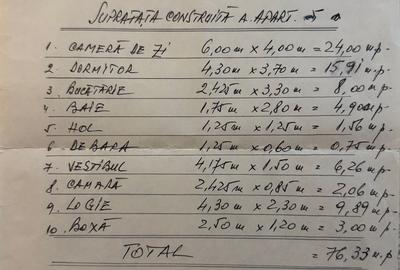 SUPRAFAȚA CONSTRUITĂ A. APART. 5
1. CAMERĂ DE ZI 6,00m × 4,00m = 24,00 m.p.
2. DORMITOR 4,30m × 3,70m = 15,91 m.p.
3. BUCĂTĂRIE 2,425m × 3,30m = 8,00 m.p.
4. BAIE 1,75m × 2,80m = 4,90 m.p.
5. HOL 1,25m × 1,25m = 1,56 m.p.
6 DEBARA 1,25m × 0,60m = 0,75 m.p.
7. VESTIBUL 4,175m × 1,50m = 6,26 m.p.
8. CAMARĂ 2,425m × 0,85m = 2,06 m.p.
9. LOGIE 4,30m × 2,30m = 9,89 m.p.
10. BOXĂ 2,50m × 1,20m = 3,00 m.p.
TOTAL = 76,33 m.p